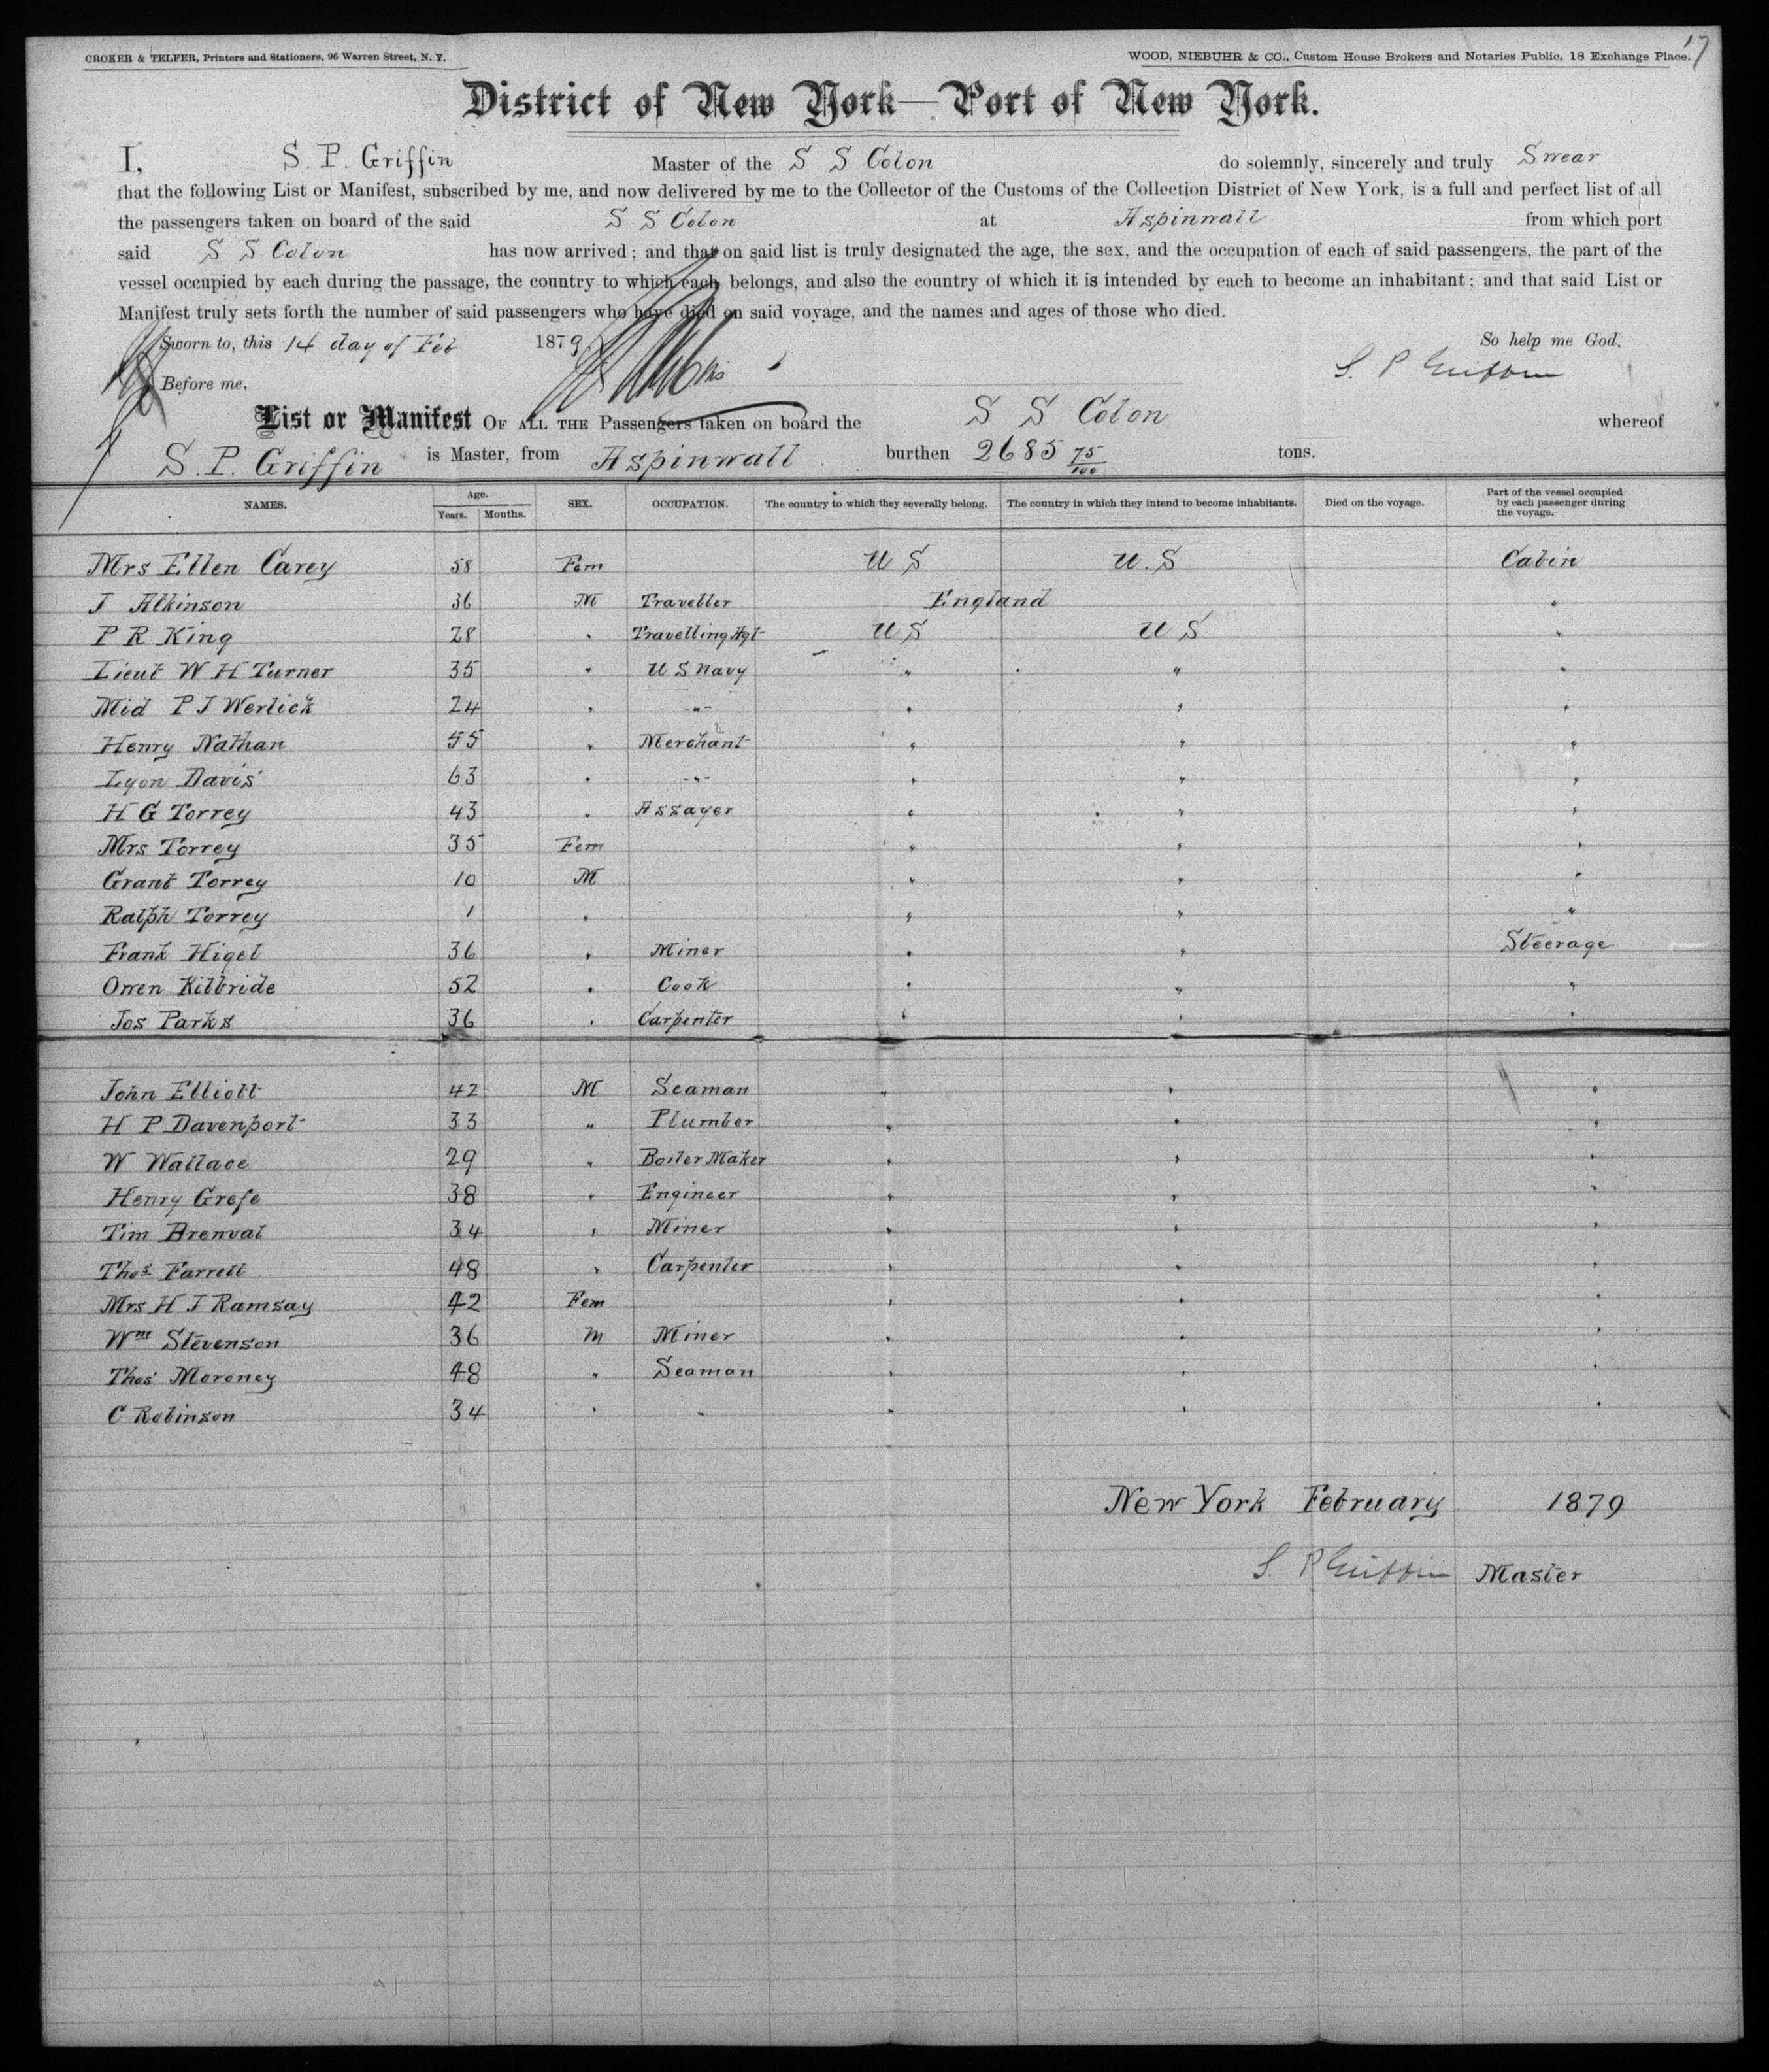 17
CROKER & TELFER, Printers and Stationers, 96 Warren Street, N. Y.
WOOD, NIEBUHR & CO., Custom House Brokers and Notaries Public, 18 Exchange Place.
District of New York—Port of New York.
I, S. P. Griffin Master of the S S Colon do solemnly, sincerely and truly Swear
that the following List or Manifest, subscribed by me, and now delivered by me to the Collector of the Customs of the Collection District of New York, is a full and perfect list of all
the passengers taken on board of the said S S Colon at Aspinwall from which port
said S S Colon has now arrived; and that on said list is truly designated the age, the sex, and the occupation of each of said passengers, the part of the
vessel occupied by each during the passage, the country to which each belongs, and also the country of which it is intended by each to become an inhabitant; and that said List or
Manifest truly sets forth the number of said passengers who have died on said voyage, and the names and ages of those who died.
Sworn to, this 14 day of Feb 1879 So help me God.
Before me, S. P Griffin
List or Manifest OF ALL THE Passengers taken on board the S S Colon whereof
S. P. Griffin is Master, from Aspinwall burthen 2685 75/100 tons.
NAMES. Age. Years. Months. SEX. OCCUPATION. The country to which they severally belong. The country in which they intend to become inhabitants. Died on the voyage. Part of the vessel occupied by each passenger during the voyage.
Mrs Ellen Carey 58 Fem U S U. S Cabin
J Atkinson 36 M Traveller England "
P R King 28 " Travelling Agt U S U S "
Lieut W H Turner 35 " U S Navy " " "
Mid P J Werlich 24 " -"- " " "
Henry Nathan 55 " Merchant " " "
Lyon Davis 63 " -"- " " "
H G Torrey 43 " Assayer " " "
Mrs Torrey 35 Fem " " "
Grant Torrey 10 M " " "
Ralph Torrey 1 " " " "
Frank Higel 36 " Miner " " Steerage
Owen Kilbride 52 " Cook " " "
Jos Parks 36 " Carpenter " " "
John Elliott 42 M Seaman " " "
H P Davenport 33 " Plumber " " "
W Wallace 29 " Boiler Maker " " "
Henry Grefe 38 " Engineer " " "
Tim 34 " Miner " " "
Thos Farrell 48 " Carpenter " " "
Mrs H J Ramsay 42 Fem " " "
Wm Stevenson 36 M Miner " " "
Thos Moroney 48 " Seaman " " "
C Robinson 34 " " " " "
New York February 1879
S. P Griffin Master